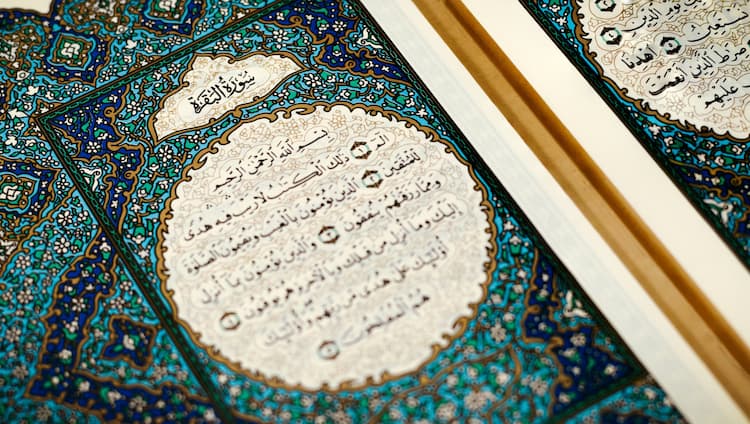 سُورَةُ الْبَقَرَة
بِسْمِ اللهِ الرَّحْمٰنِ الرَّحِيمِ
الٓمٓ ذٰلِكَ الْكِتٰبُ لَارَيْبَ فِيهِ هُدًى
لِلْمُتَّقِينَ الَّذِينَ يُؤْمِنُونَ بِالْغَيْبِ وَيُقِيمُونَ الصَّلٰوةَ
وَمِمَّا رَزَقْنٰهُمْ يُنْفِقُونَ وَالَّذِينَ يُؤْمِنُونَ بِمَا اُنْزِلَ
اِلَيْكَ وَمَا اُنْزِلَ مِنْ قَبْلِكَ وَبِالْاٰخِرَةِ هُمْ يُوقِنُونَ
اُولٰئِكَ عَلٰى هُدًى مِنْ رَبِّهِمْ وَاُولٰئِكَ
هُمُ الْمُفْلِحُونَ
الدِّينِ
نَسْتَعِينُ اِهْدِنَا
صِرَاطَ الَّذِينَ اَنْعَمْتَ
عَلَيْهِمْ